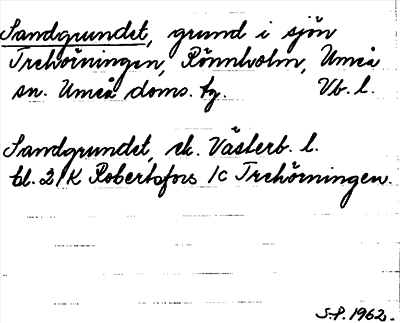 Sandgrundet, grund i sjön
Trehörningen, Rönnholm, Umeå
sn. Umeå doms. tg. Vb. l.
Sandgrundet, ek. Västerb. l.
bl. 21K Robertsfors 1c Trehörningen.
S.P. 1962.